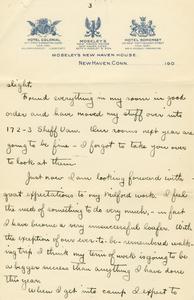 3
HOTEL COLONIAL
MOSELEY'S
HOTEL SOMERSET
MOSELEY'S NEW HAVEN HOUSE.
NEW HAVEN, CONN. 190
slight.
Found everything in my room in good
order and have moved my stuff over into
172-3 Sheff Vam. Our rooms next year are
going to be fine - I forgot to take you over
to look at them
Just now I am looking forward with
great expectations to my Milford work. I feel
the need of something to do very much, - in fact
I have become a very unsuccessful loafer. With
the exception of our ever-to-be-remembered walk-
ing trip I think my term of work is going to be
a bigger success than anything I have done
this year.
When I get into camp I expect to